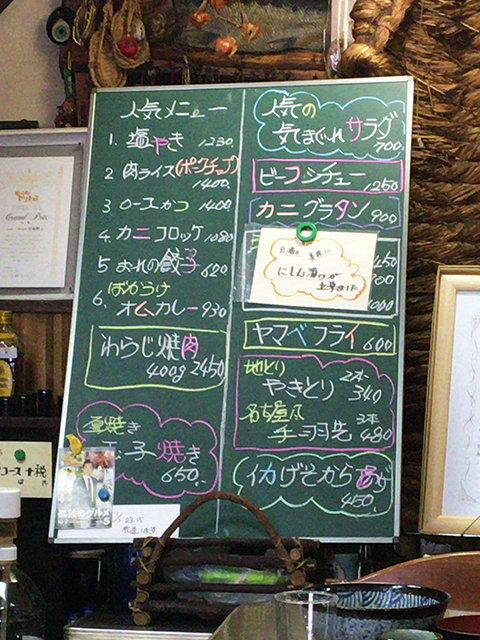 人気メニュー
1. 塩やき 1230
2 肉ライス(ポークチョップ)
1400
3 ロースカツ 1400
4. カニコロッケ 1080
5 おれの餃子 620
6. ばかうけ
オムカレー 930
わらじ焼肉
400g 2450
重焼き
玉子焼き
650.
人気の
気まぐれサラダ
700.
ビーフシチュー
1250
カニグラタン 900
450
900
1000
にしん漬
ヤマベフライ 600
地とり
やきとり 2本 340
名古屋風
手羽先 3本 480
イカげそから揚げ
450.
Grand Prix
コース+税
のグルメ